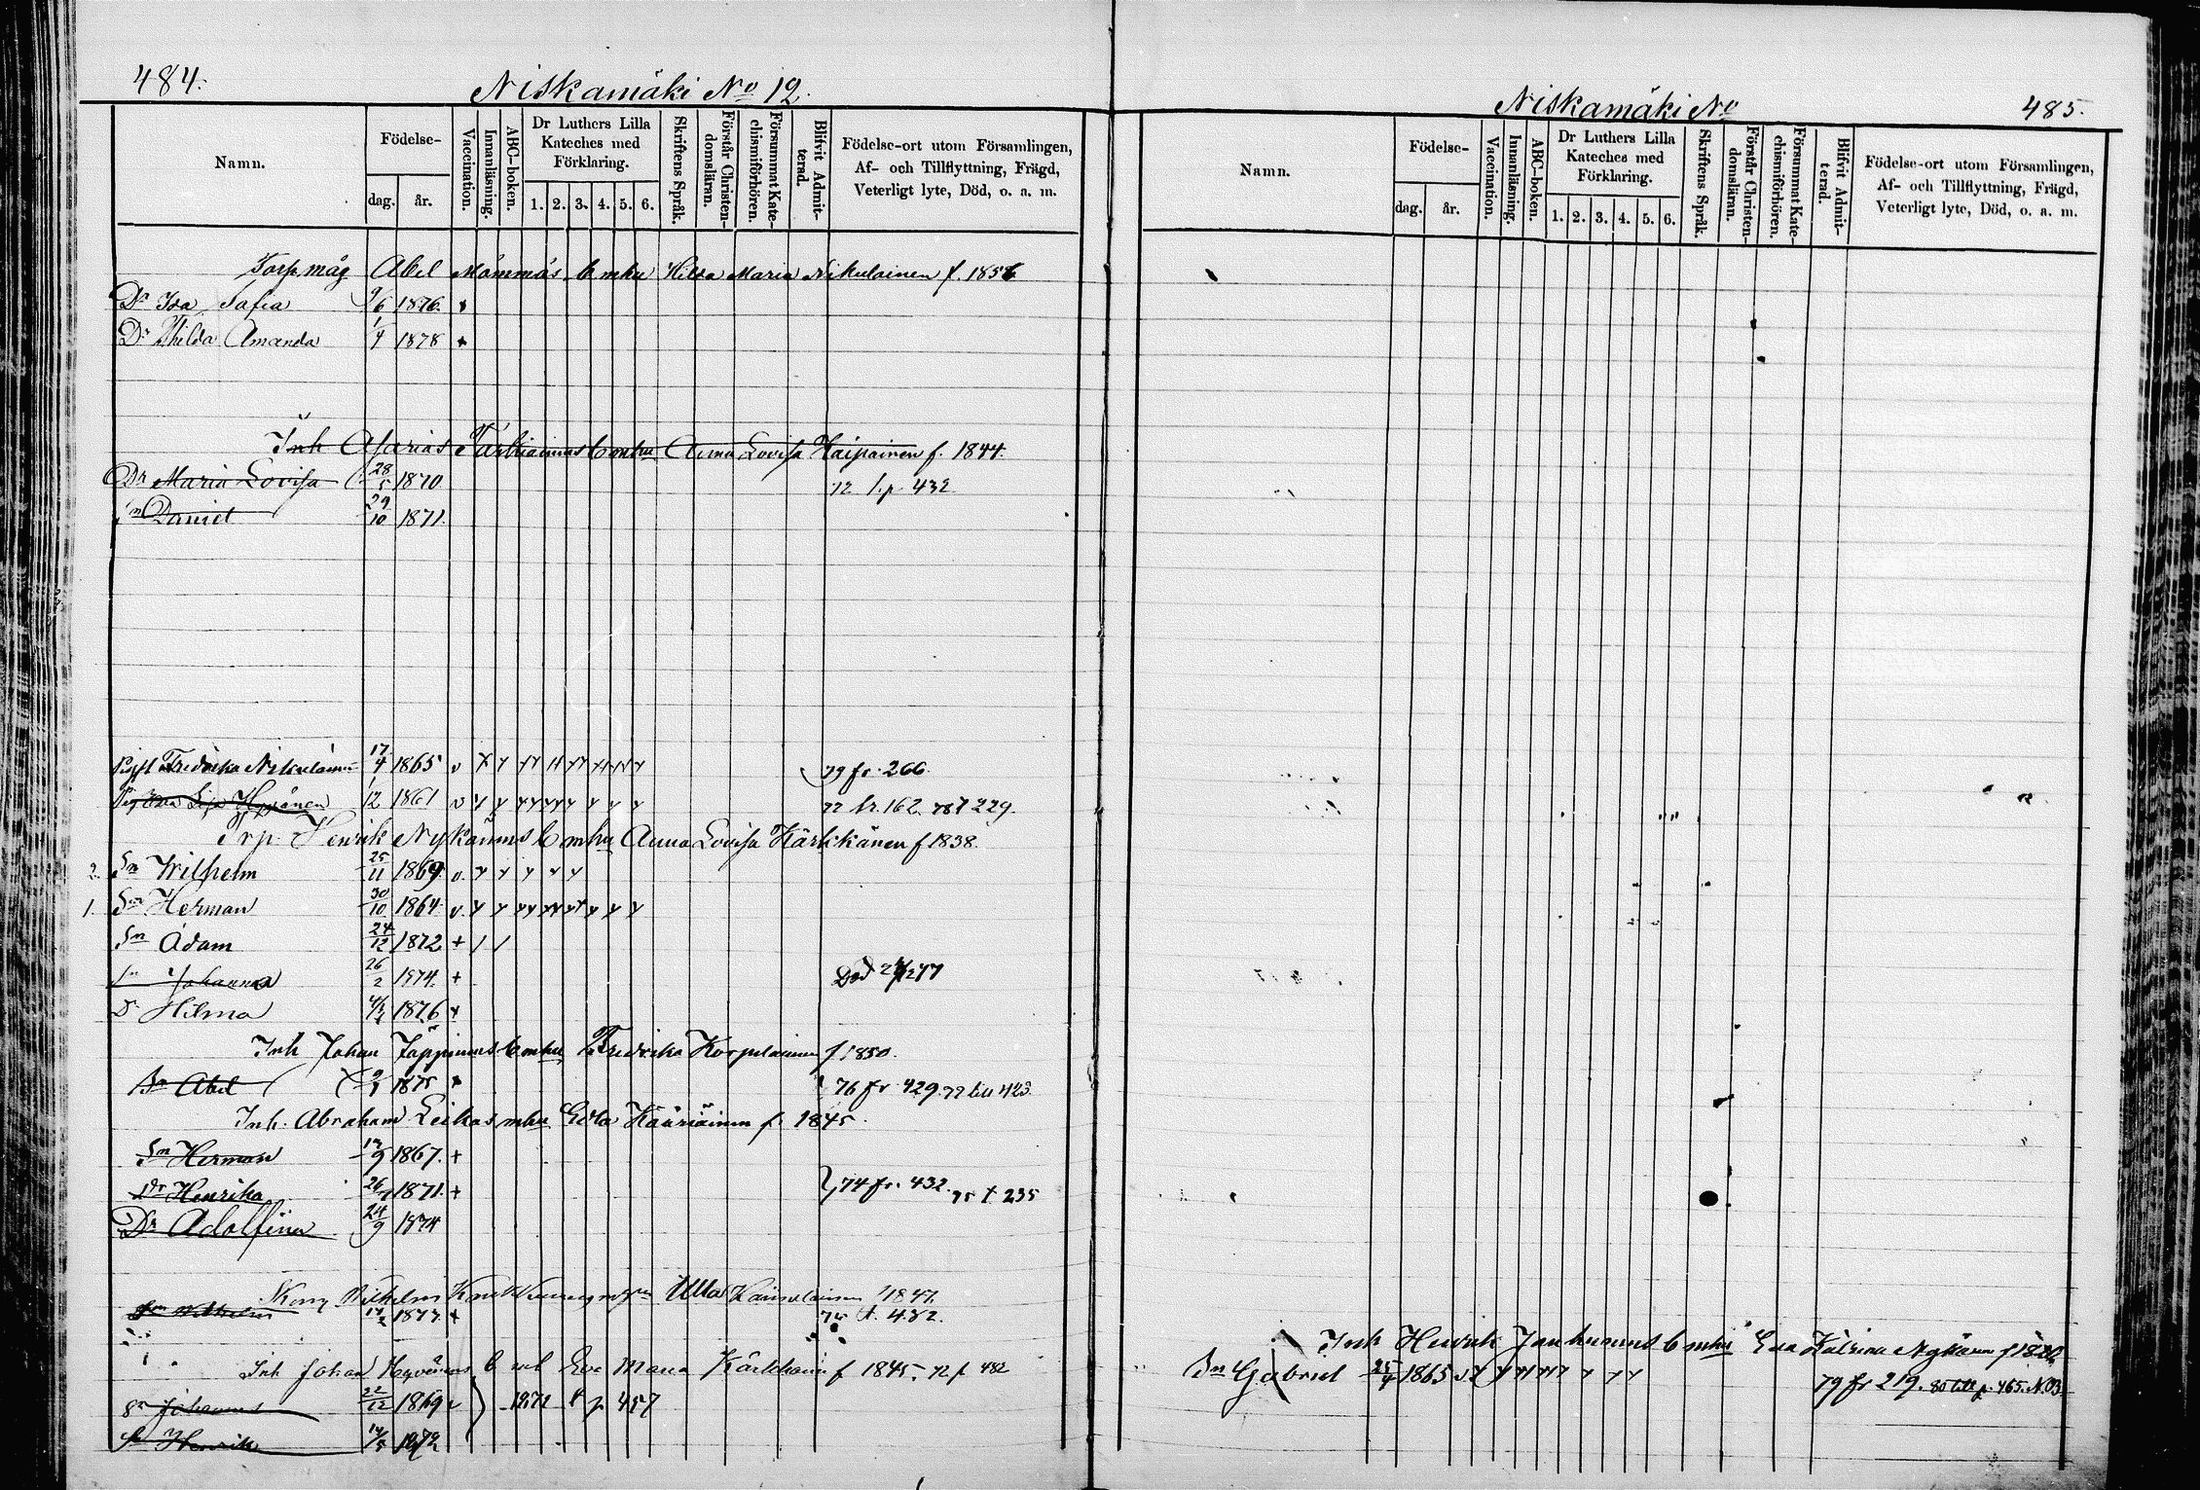 484.
Niskamäki No 12.
Namn.
Födelse-
dag. år.
Vaccination.
Innanläsning.
ABC-boken.
Dr Luthers Lilla
Kateches med
Förklaring.
1. 2. 3. 4. 5. 6.
Skriftens Språk.
Förstår Christen-
domsläran.
Försummat Kate-
chismiförhören.
Blifvit Admit-
terad.
Födelse-ort utom Församlingen,
Af- och Tillflyttning, Frägd,
Veterligt lyte, Död, o. a. m.
Torp. måg Abel Mömmös b mhu Hilda Maria Nikulainen f. 1856
Dr Ida Sofia 9/6 1876.
Dr Hilda Amanda 1/4 1878 +
Inh Asarias Tarkiainens b mhu Anna Lovisa Haipainen f. 1844.
Dr Maria Lovisa 28/5 1870 72 t. p. 432
Sn Daniel 29/10 1871.
Fredrika Nikulainen 17/4 1865 v 79 fr. 266.
Lisa Hyvönen 1/12 1861 v 77 fr. 162. 78 t 229.
Trp. Henrik Nykänens b mhu Anna Lovisa Kärkkänen f 1838.
2. Sn Wilhelm 25/11 1869 v.
1. Sn Herman 30/10 1864 v.
Sn Adam 24/12 1872 + / /
Sn Johannes 26/2 1874. + Död 77
Dr Hilma 1876 +
Inh Johan Jäppinens b mhu Fredrika Korpelainen f 1850.
Sn Abel 1875 76 fr 429. 77 till 423
Inh. Abraham Leikas mhu Edla Kauriainen f. 1845.
Sn Herman 1867. +
Dr Henrika 1871. + 74 fr. 432. 75 t 235
Dr Adolfina 24/9 1874
Wilhelm Ulla 1847.
Sn Wilhelm 1873. + t. 432.
Inh Johan Hyvönens b mh Eva Maria Kärkkäinen f 1845. 72 f 482
Sn Johannes 22/12 1869 v 1872 t p 457
Sn Henrik 1872
Niskamäki No
485.
Namn.
Födelse-
dag. år.
Vaccination.
Innanläsning.
ABC-boken.
Dr Luthers Lilla
Kateches med
Förklaring.
1. 2. 3. 4. 5. 6.
Skriftens Språk.
Förstår Christen-
domsläran.
Försummat Kate-
chismiförhören.
Blifvit Admit-
terad.
Födelse-ort utom Församlingen,
Af- och Tillflyttning, Frägd,
Veterligt lyte, Död, o. a. m.
Inh Henrik Janhunens b mhu Eva Katrina Nykänen
Sn Gabriel 25/4 1865 79 fr 219. 80 till p. 465. No 3.